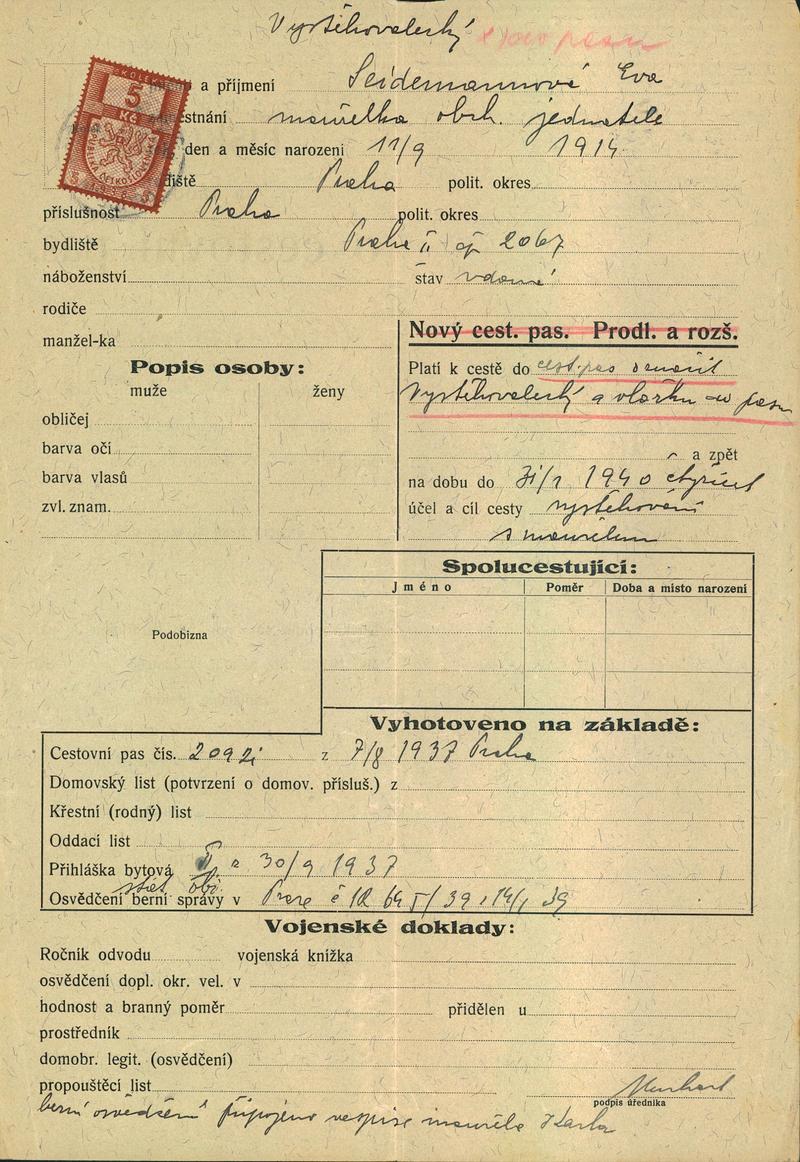 Vystěhovalecký
KOLEK
5
Kč
a příjmení Seidemannová Eva
stnání manželka obch. jednatele
den a měsíc narození 11/9 1914
diště Praha polit. okres
příslušnost Praha polit. okres
bydliště Praha II čp 2067
náboženství stav vdaná
rodiče
manžel-ka
Nový cest. pas. Prodl. a rozš.
Popis osoby:
muže ženy
Platí k cestě do cest. pas
Vystěhovalecký a vložku pasu
obličej
barva očí
a zpět
barva vlasů
na dobu do 1940 čtyřicet
zvl. znam.
účel a cíl cesty vystěhování
s manželem
Spolucestující:
Jméno Poměr Doba a místo narození
Podobizna
Vyhotoveno na základě:
Cestovní pas čís. z 7/8 1937 Praha
Domovský list (potvrzení o domov. přísluš.) z
Křestní (rodný) list
Oddací list
Přihláška bytová z 30/9 1937
Osvědčení berní správy v
Vojenské doklady:
Ročník odvodu vojenská knížka
osvědčení dopl. okr. vel. v
hodnost a branný poměr přidělen u
prostředník
domobr. legit. (osvědčení)
propouštěcí list
podpis úředníka
berní osvědčení připojeno ve spise manžela Karla